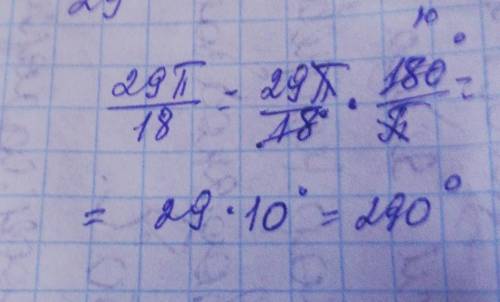 29
29π/18 = 29π/18 · 180°/π =
10
= 29 · 10° = 290°